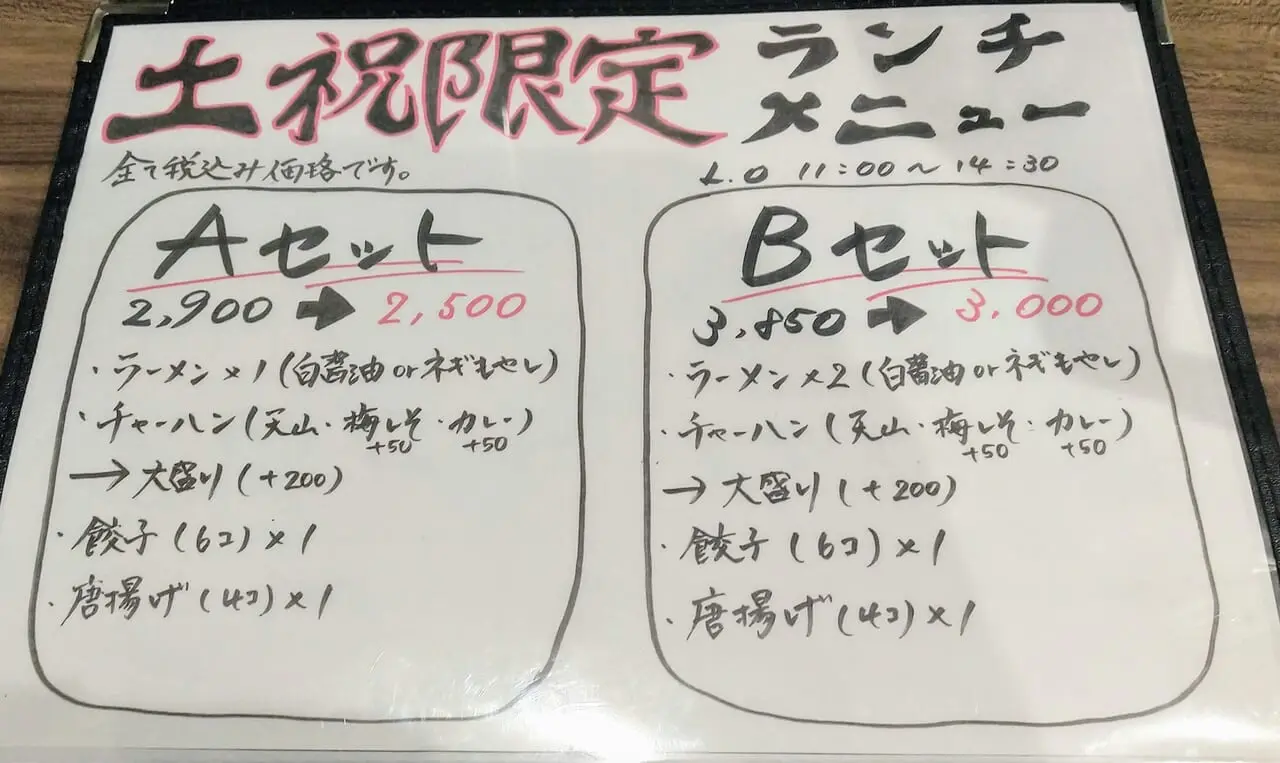 土祝限定
ランチ
メニュー
全て税込み価格です。
L.O 11:00～14:30
Aセット
2,900 ➡ 2,500
・ラーメン×1(白醤油orネギもやし)
・チャーハン(天山・梅しそ・カレー)
+50 +50
→大盛り(+200)
・餃子(6コ)×1
・唐揚げ(4コ)×1
Bセット
3,850 ➡ 3,000
・ラーメン×2(白醤油orネギもやし)
・チャーハン(天山・梅しそ・カレー)
+50 +50
→大盛り(+200)
・餃子(6コ)×1
・唐揚げ(4コ)×1